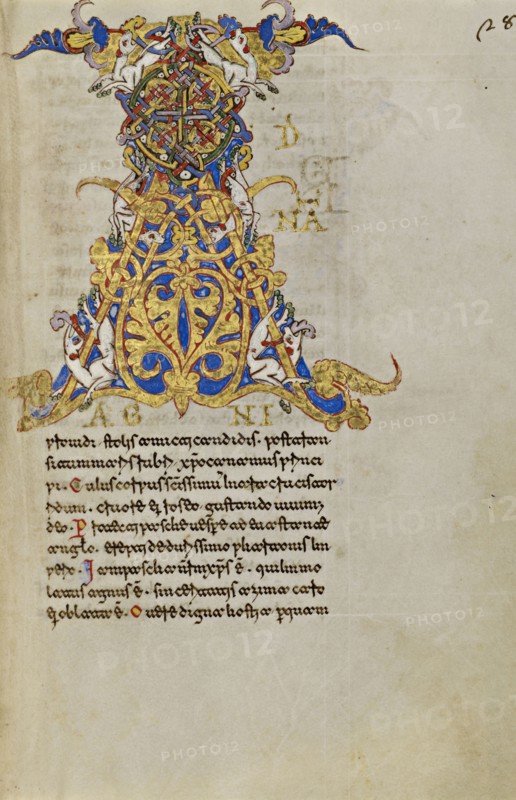 28
D
CE
NA
AGNI
prouidi stolis amicti candidis. post tran
situm maris rubri xpo canamus princi
pi. Cuius corpus scissimum in ara crucis tor
ridum. cruore ei roseo gustando uiuim
deo. Protecti pasche uespere a deuastante
angelo. erepti de durissimo pharaonis im
perio. Iam pascha nrm xps e. qui immo
latus agnus e. sinceritatis azima caro
ei oblata e. O uere digna hostia per quam
PHOTO12